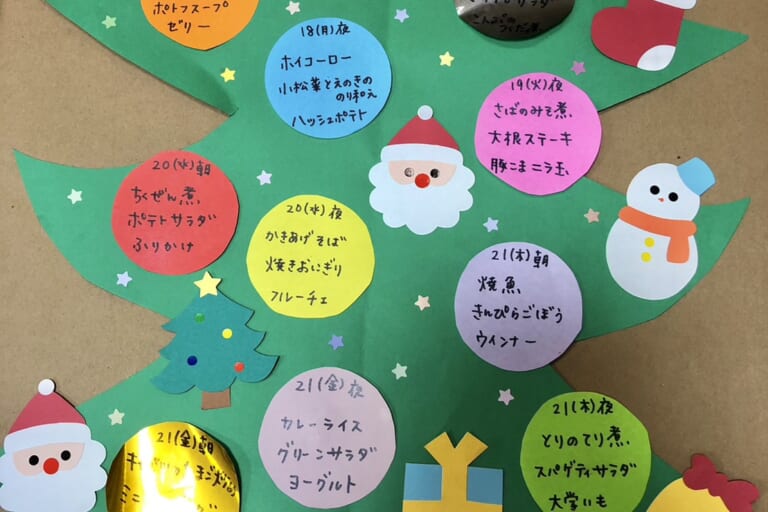 ポトフスープ
ゼリー
18(月)夜
ホイコーロー
小松菜とえのきの
のり和え
ハッシュポテト
19(火)夜
さばのみそ煮
大根ステーキ
豚こまニラ玉
20(水)朝
ちくぜん煮
ポテトサラダ
ふりかけ
20(水)夜
かきあげそば
焼きおにぎり
フルーチェ
21(木)朝
焼魚
きんぴらごぼう
ウインナー
21(金)夜
カレーライス
グリーンサラダ
ヨーグルト
21(木)夜
とりのてり煮
スパゲティサラダ
大学いも
21(金)朝